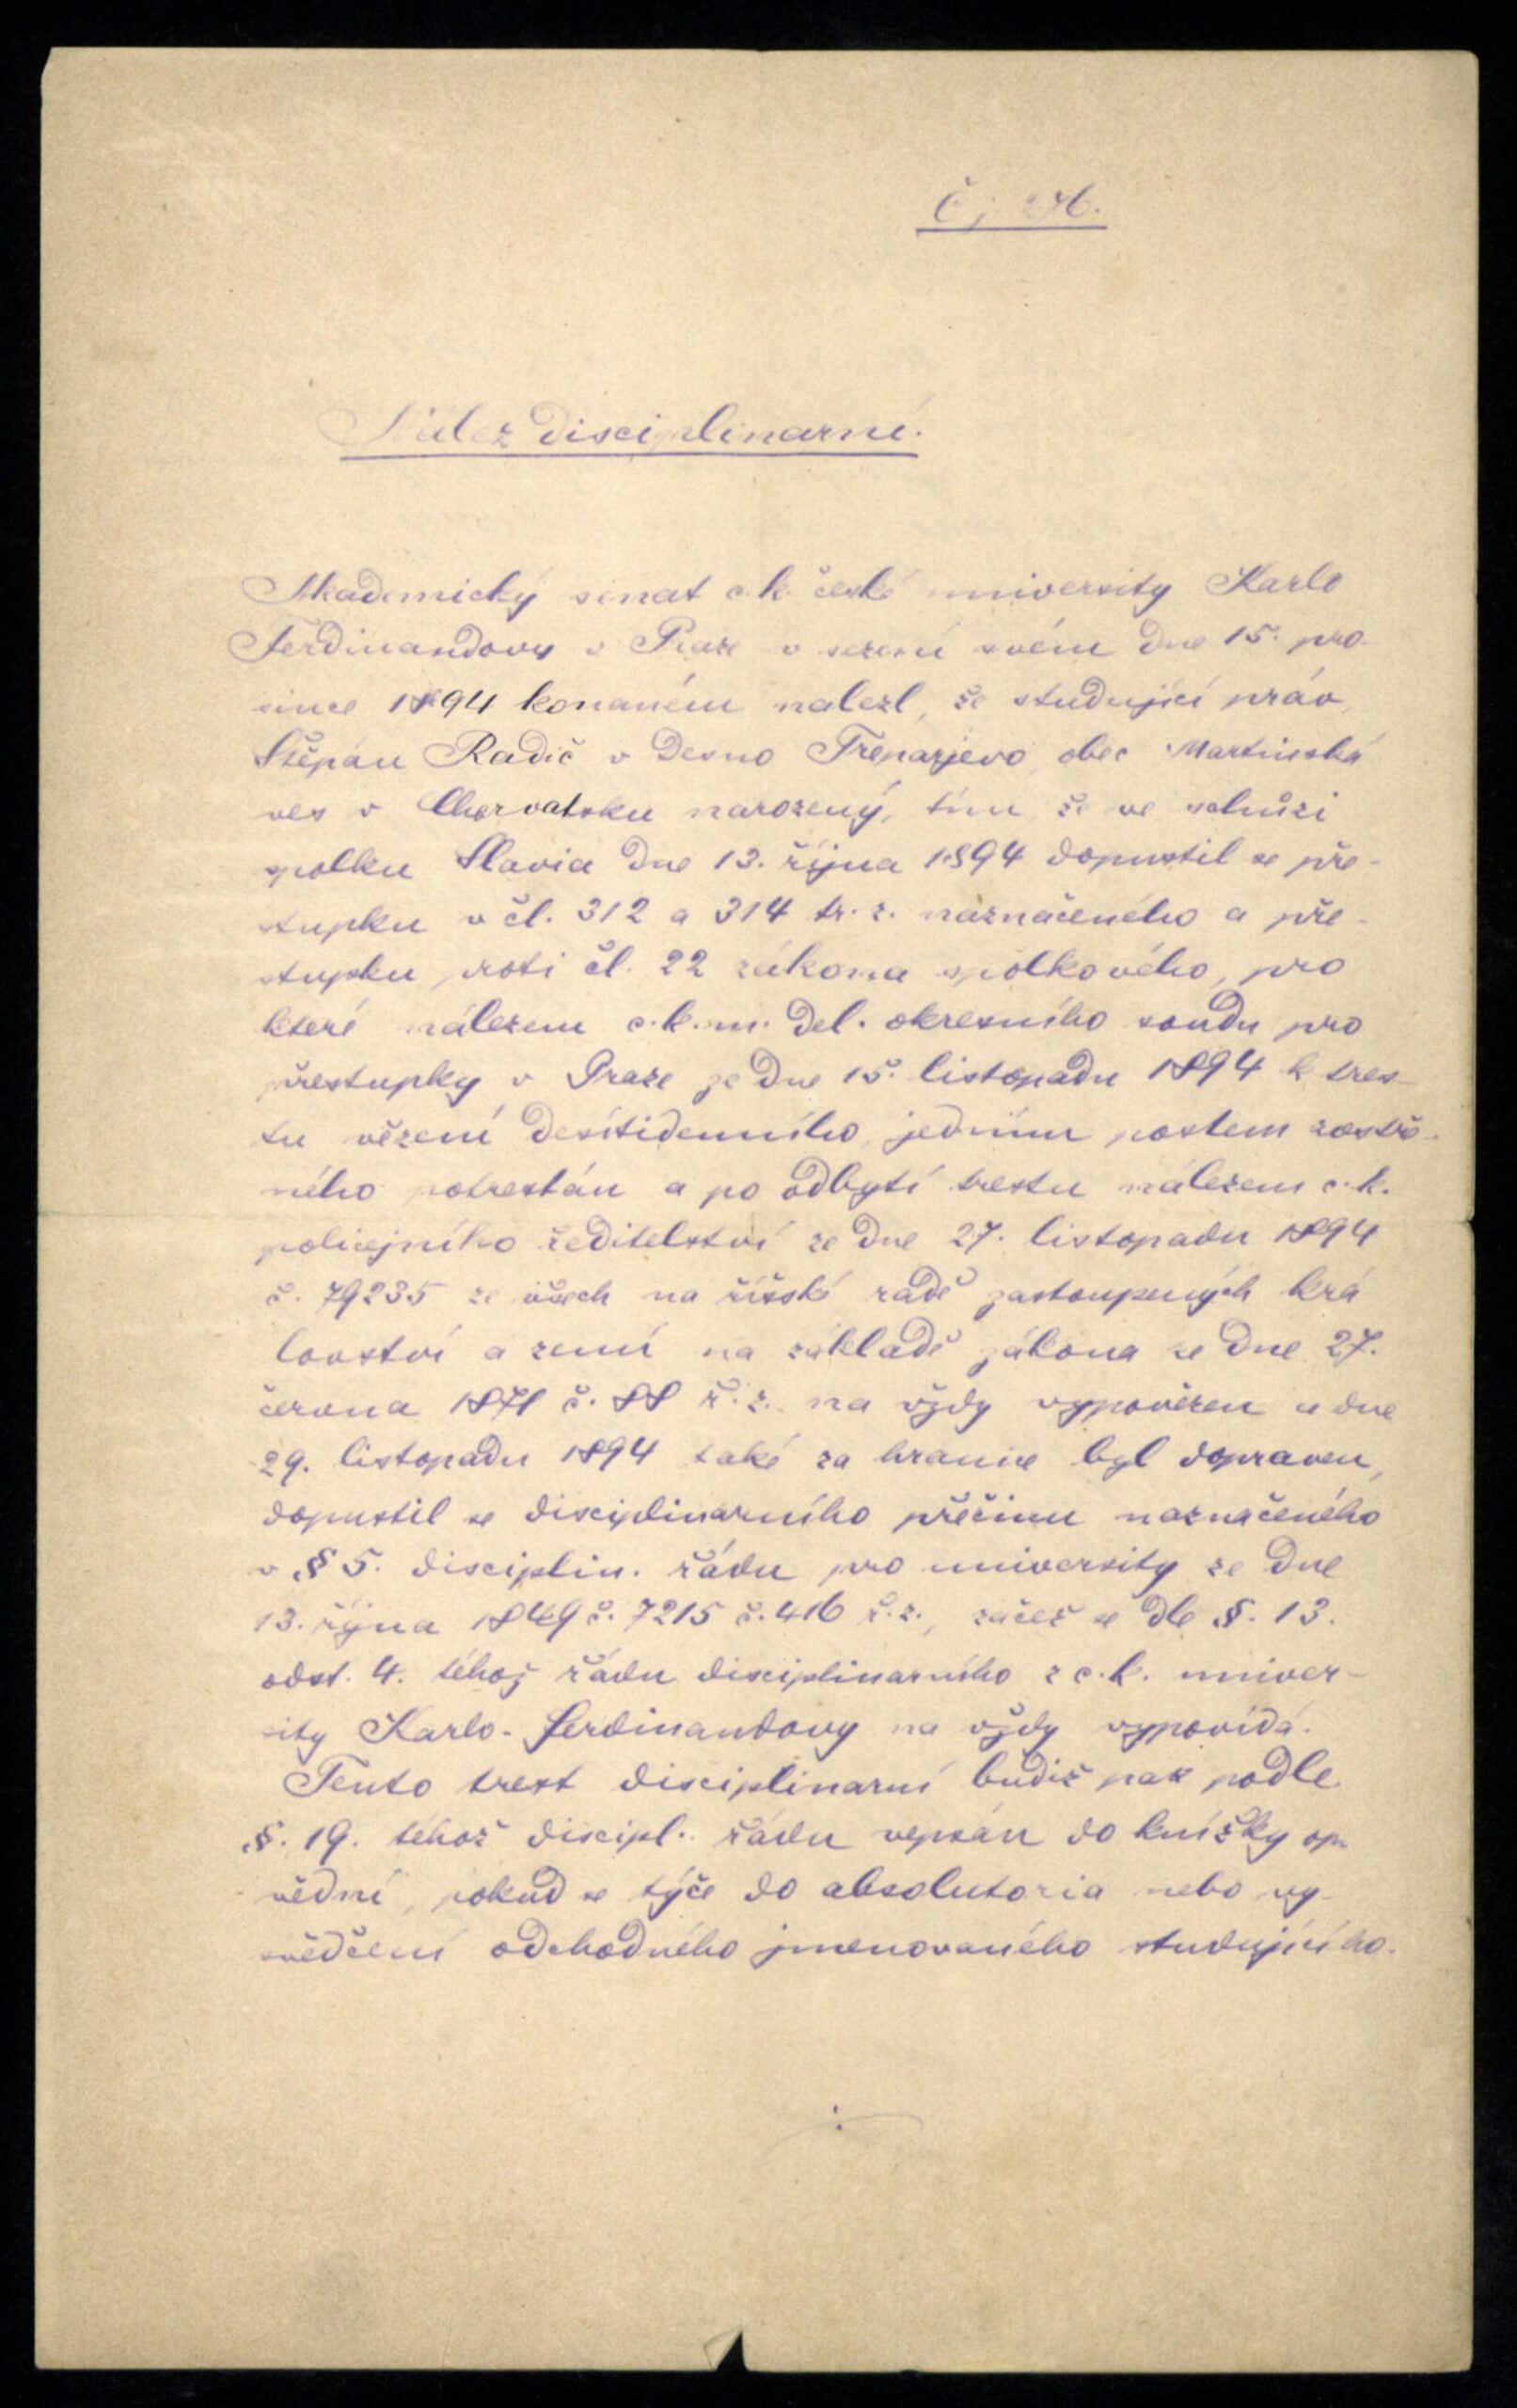 Č j 276.
Nález disciplinarní.
Akademický senat c. k. české university Karlo
Ferdinandovy v Praze v sezení svém dne 15. pro-
since 1894 konaném nalezl, že studující práv,
Štěpán Radič v Desno Trenarjevo, obec Martinská
ves v Chorvatsku narozený, tím že ve schůzi
spolku Slavia dne 13. října 1894 dopustil se pře-
stupku v čl. 312 a 314 tr. z. naznačeného a pře-
stupku proti čl. 22 zákona spolkového, pro
které nálezem c. k. m. del. okresního soudu pro
přestupky v Praze ze dne 15. listopadu 1894 k tres-
tu vězení desítidenního, jedním postem zostře-
ného potrestán a po odbytí trestu nálezem c. k.
policejního ředitelství ze dne 27. listopadu 1894
č. 79235 ze všech na říšské radě zastoupených krá
lovství a zemí na základě zákona ze dne 27.
června 1871 č. 88 ř. z. na vždy vypovězen a dne
29. listopadu 1894 také za hranice byl dopraven,
dopustil se disciplinarního přečinu naznačeného
v § 5. disciplin. řádu pro university ze dne
13. října 1849 č. 7215 č. 416 ř. z., začež se dle §. 13.
odst. 4. téhož řádu disciplinarního z c. k. univer-
sity Karlo-Ferdinandovy na vždy vypovídá.
Tento trest disciplinarní budiž pak podle
§. 19. téhož discipl. řádu vepsán do knížky
vědní, pokud se týče do absolutoria nebo vy-
svědčení odchodného jmenovaného studujícího.